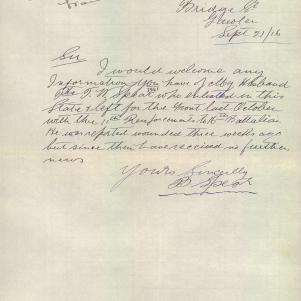 Bridge St
Gawler
Sept 21/16
Sir
I would welcome any
Information you have of My Husband
Pte T. W. Spear who enlisted in this
State & left for the Front last October
with the 11th Reinforcements to 10th Battalion
He was reported wounded three weeks ago
but since then have received no further
news
Yours Sincerely
B Spear